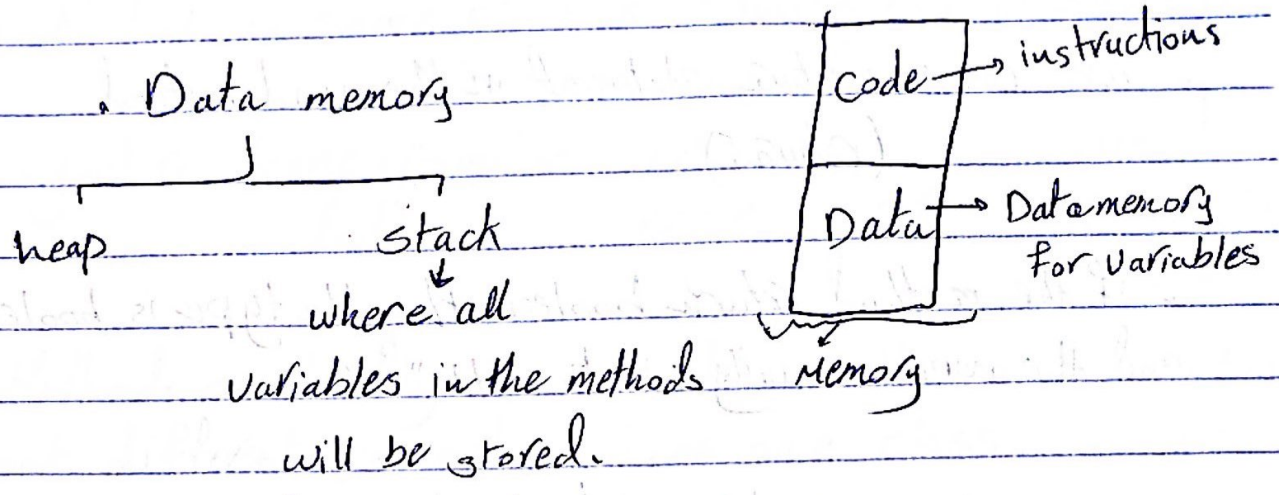 . Data memory
heap
stack
where all
variables in the methods
will be stored.
Code → instructions
Data → Data memory
for variables
Memory